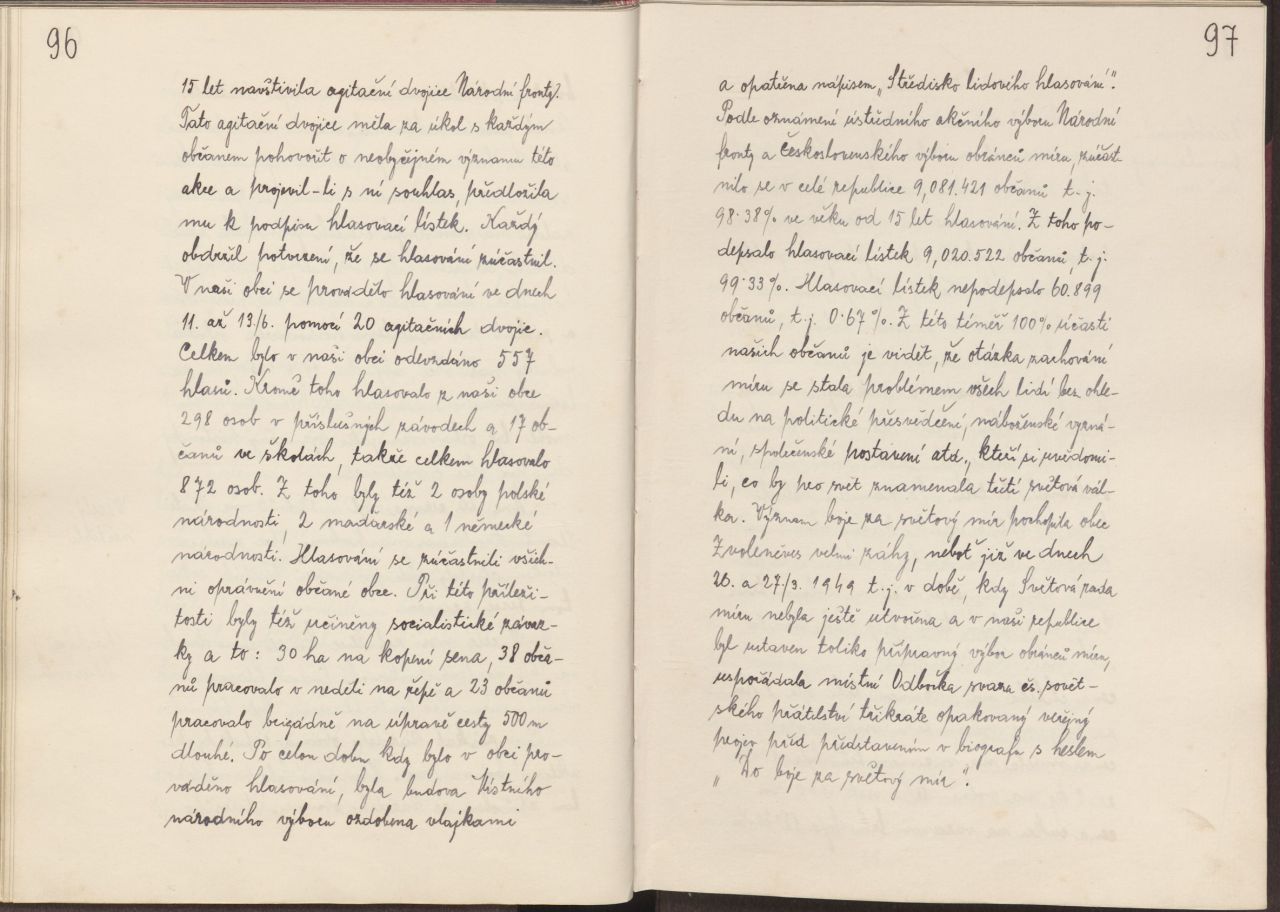 96
15 let navštívila agitační dvojice Národní fronty.
Tato agitační dvojice měla za úkol s každým
občanem pohovořit o neobyčejném významu této
akce a projevil-li s ní souhlas, předložila
mu k podpisu hlasovací lístek. Každý
obdržel potvrzení, že se hlasování zúčastnil.
V naší obci se provádělo hlasování ve dnech
11. až 13./6. pomocí 20 agitačních dvojic.
Celkem bylo v naší obci odevzdáno 557
hlasů. Kromě toho hlasovalo z naší obce
298 osob v příslušných závodech a 17 ob-
čanů ve školách, takže celkem hlasovalo
872 osob. Z toho byly též 2 osoby polské
národnosti, 2 maďarské a 1 německé
národnosti. Hlasování se zúčastnili všich-
ni oprávnění občané obce. Při této příleži-
tosti byly též učiněny socialistické závaz-
ky a to: 30 ha na kopení sena, 38 obča-
nů pracovalo v neděli na řepě a 23 občanů
pracovalo brigádně na úpravě cesty 500 m
dlouhé. Po celou dobu kdy bylo v obci pro-
váděno hlasování, byla budova Místního
národního výboru ozdobena vlajkami
97
a opatřena nápisem „Středisko lidového hlasování".
Podle oznámení ústředního akčního výboru Národní
fronty a Československého výboru obránců míru, zúčast-
nilo se v celé republice 9,081.421 občanů t. j.
98·38% ve věku od 15 let hlasování. Z toho po-
depsalo hlasovací lístek 9,020.522 občanů, t. j.
99·33%. Hlasovací lístek nepodepsalo 60.899
občanů, t. j. 0·67%. Z této téměř 100% účasti
našich občanů je vidět, že otázka zachování
míru se stala problémem všech lidí bez ohle-
du na politické přesvědčení, náboženské vyzná-
ní, společenské postavení atd., kteří si uvědomi-
li, co by pro svět znamenala třetí světová vál-
ka. Význam boje za světový mír pochopila obec
Zvoleněves velmi záhy, neboť již ve dnech
26. a 27./3. 1949 t. j. v době, kdy Světová rada
míru nebyla ještě utvořena a v naší republice
byl ustaven toliko přípravný výbor obránců míru,
uspořádala místní Odbočka svazu čs. sovět-
ského přátelství třikráte opakovaný veřejný
projev před představením v biografu s heslem
„Do boje za světový mír".